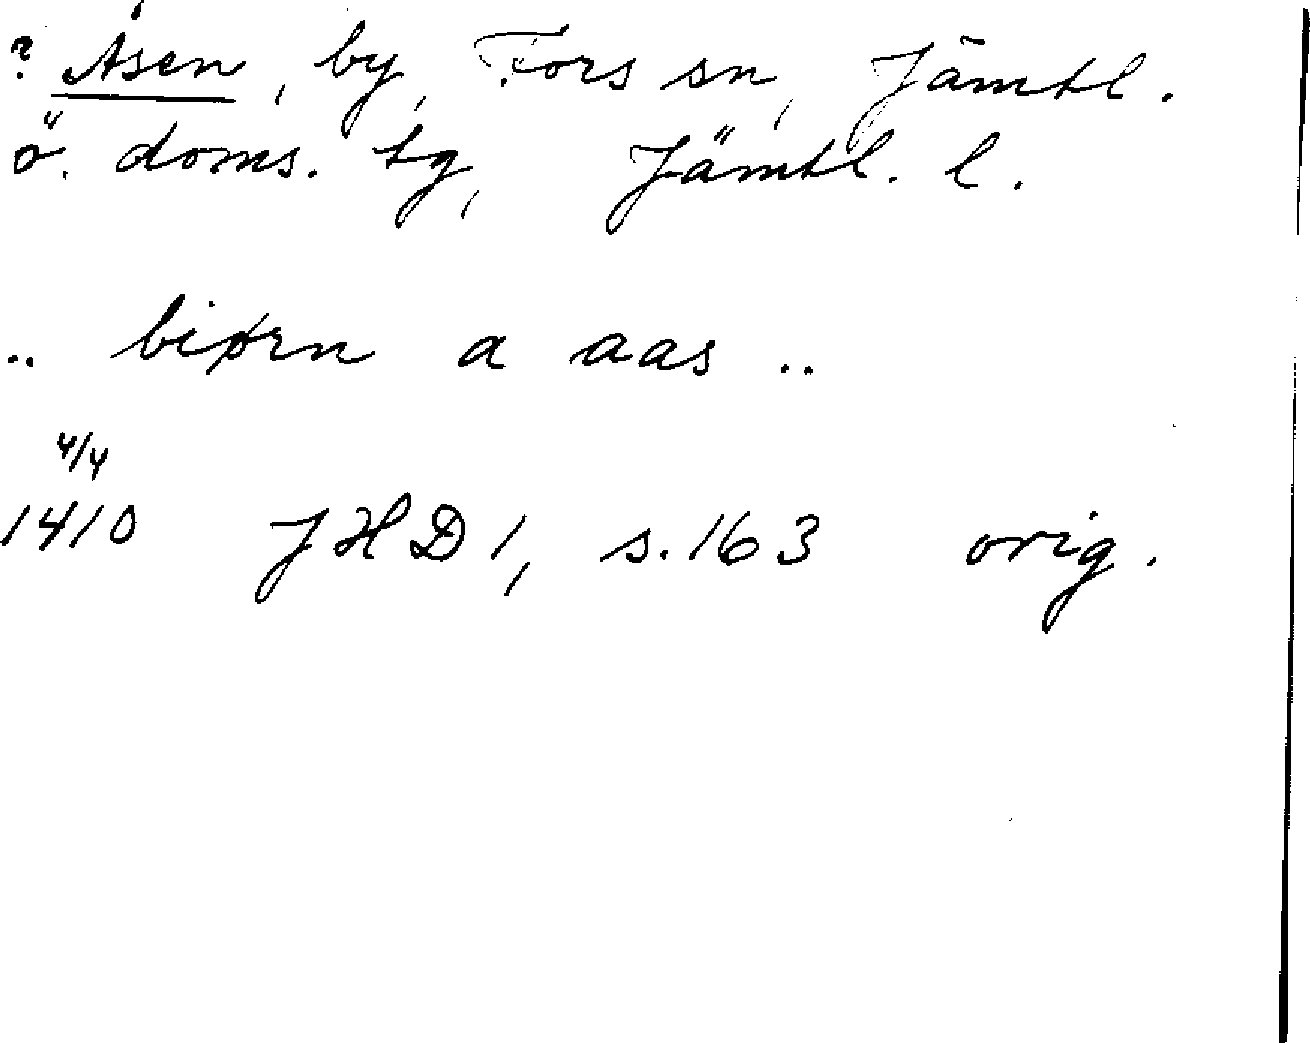 ? Åsen, by, Fors sn, Jämtl.
ö. doms. tg, Jämtl. l.
.. biørn a aas ..
4/4
1410 JHD 1, s. 163 orig.